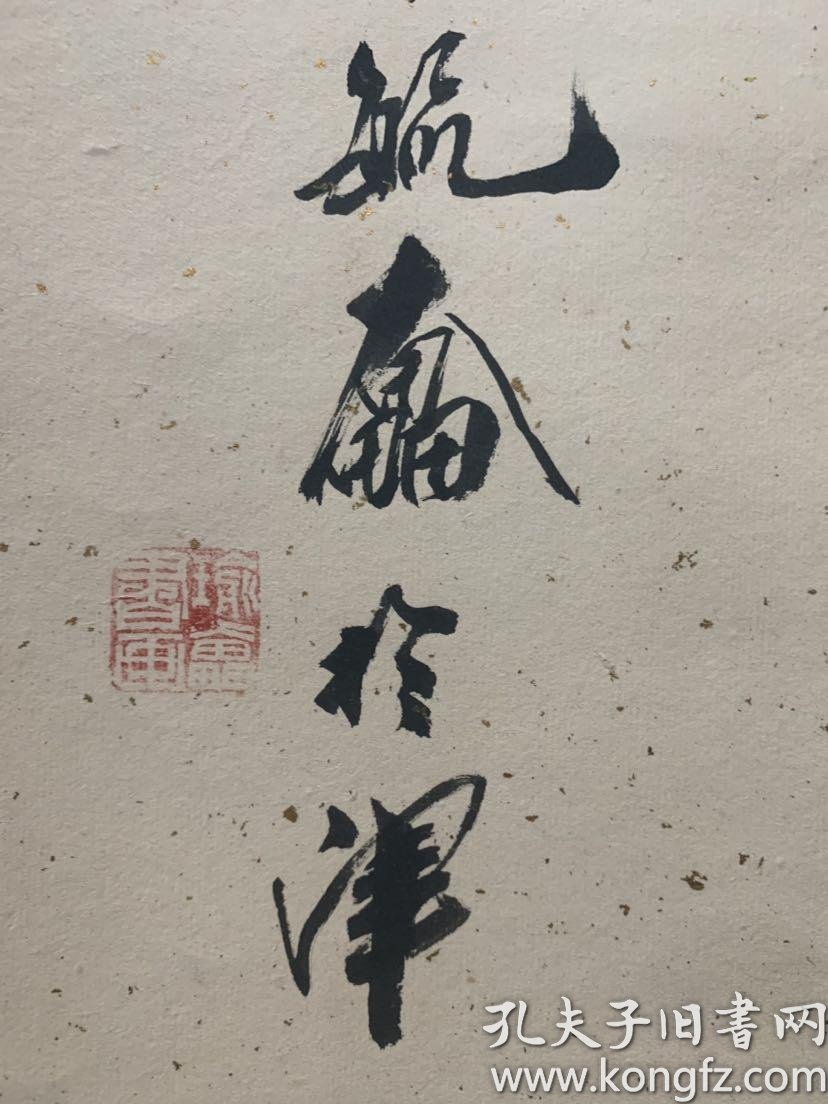 毓奮於津
孔夫子旧書网
www.kongfz.com